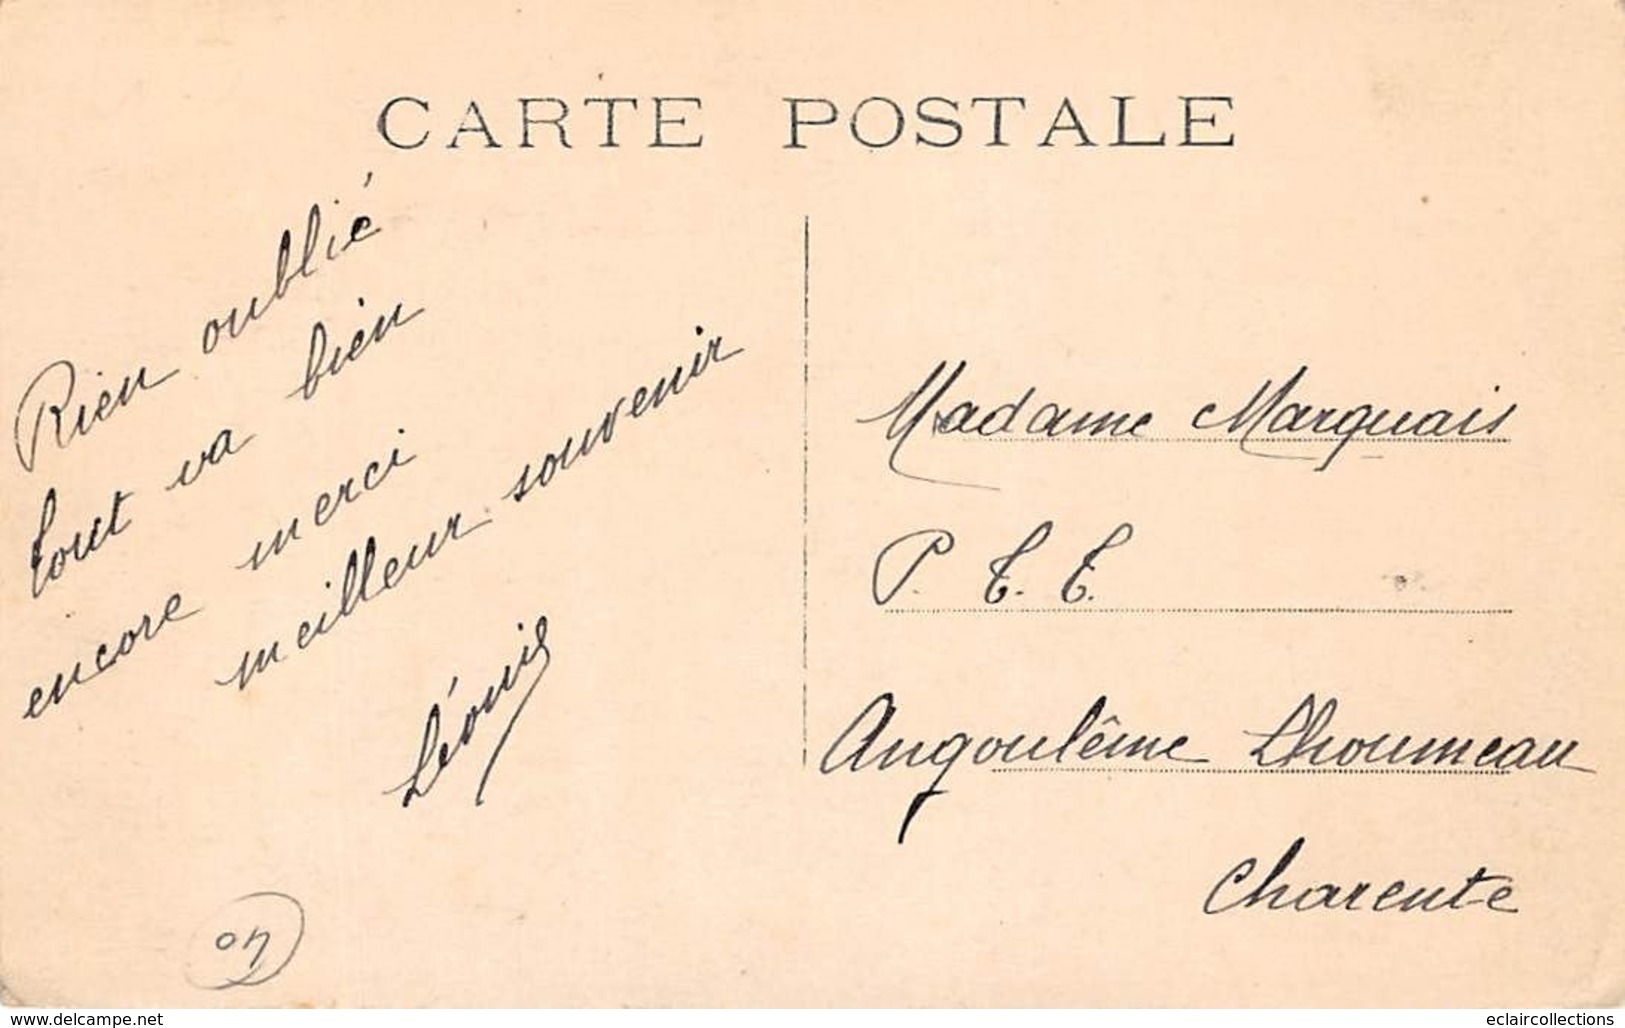 CARTE POSTALE
Rien oublié
tout va bien
encore merci
meilleur souvenir
Madame Marquais
P. T. T.
Angoulême Lhoumeau
Charente
www.delcampe.net
eclaircollections